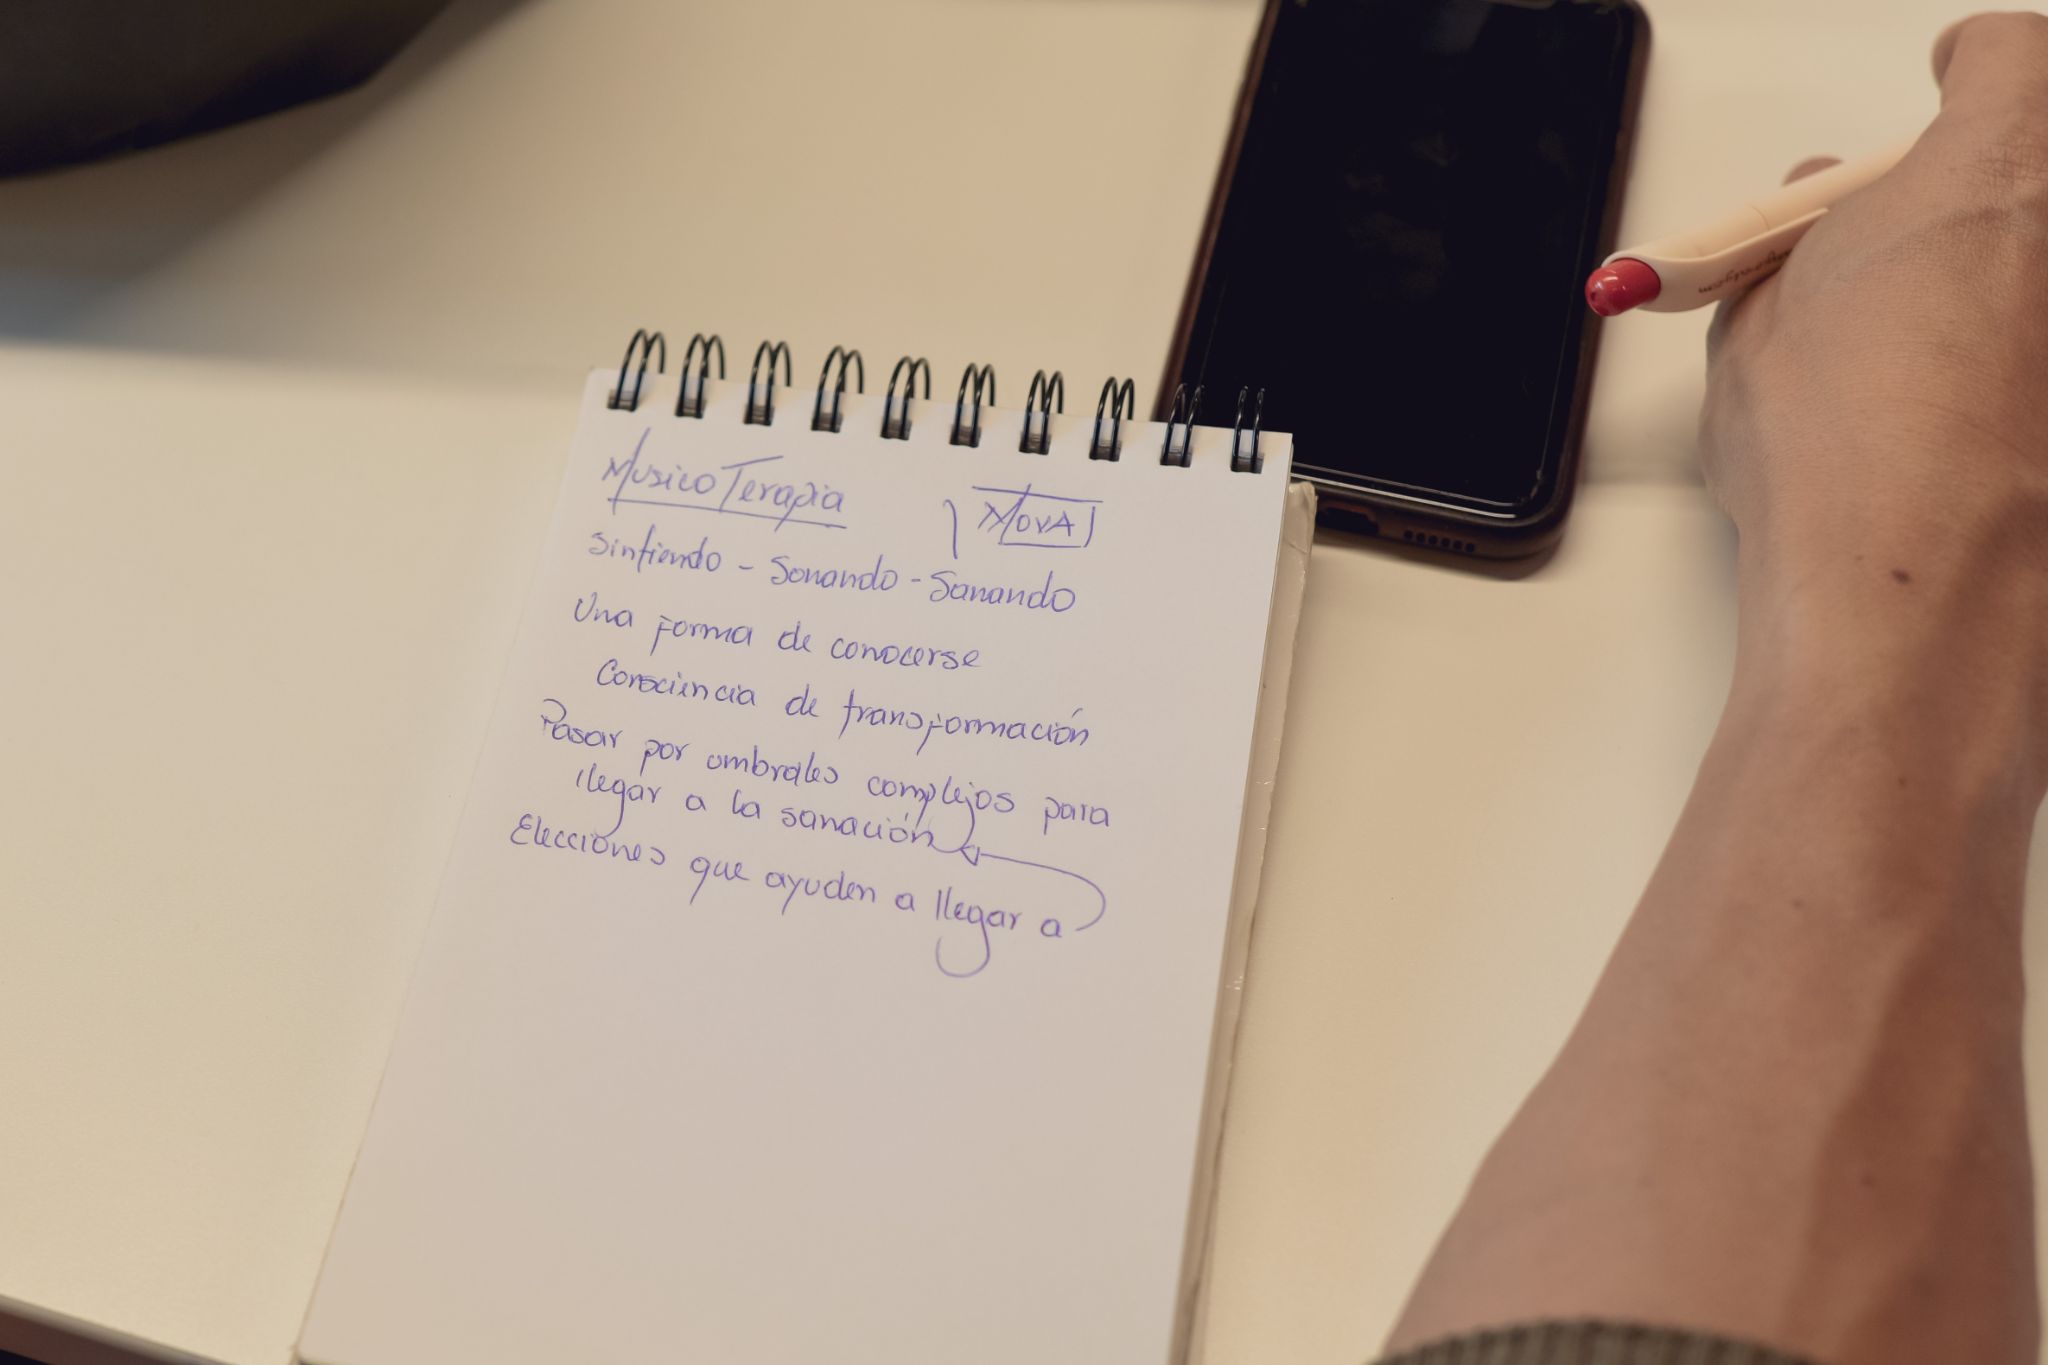 MusicoTerapia MovA
Sintiendo - Sonando - Sanando
Una forma de conocerse
Consciencia de transformación
Pasar por umbrales complejos para
llegar a la sanación
Elecciones que ayuden a llegar a